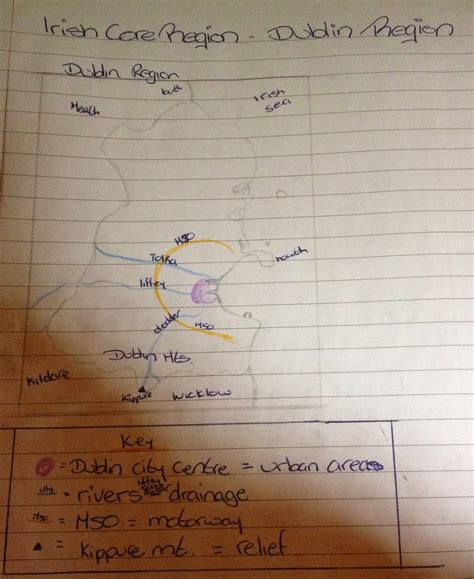 Irish Core Region - Dublin Region
Dublin Region
Irish
sea
Meath
M50
Tolka
howth
liffey
dodder
M50
Dublin Mts.
Kildare
Kippure
Wicklow
Key
= Dublin city centre = urban areas
liffey
= rivers drainage
M50 = M50 = motorway
= Kippure mt. = relief.